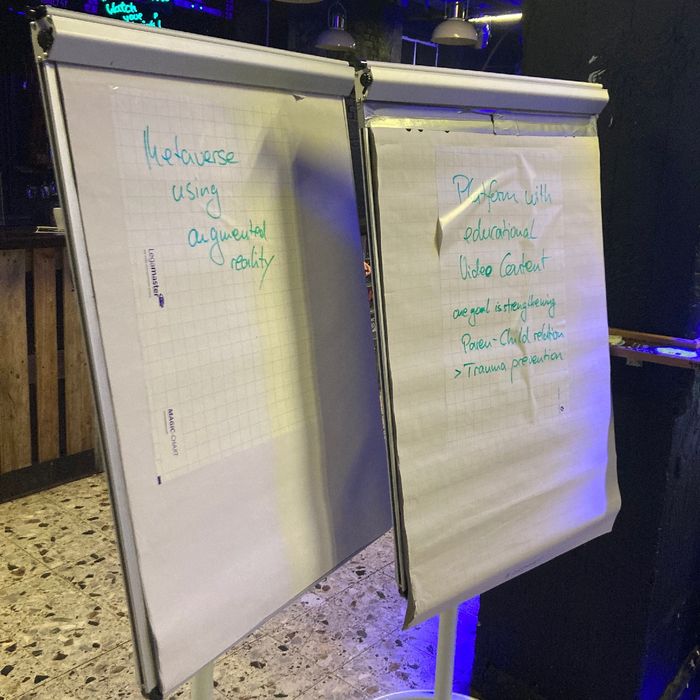 Watch
your
Metaverse
using
augmented
reality
Legamaster
MAGIC-CHART
Platform with
educational
Video Content
one goal is strengthening
Paren-Child relation
> Trauma prevention